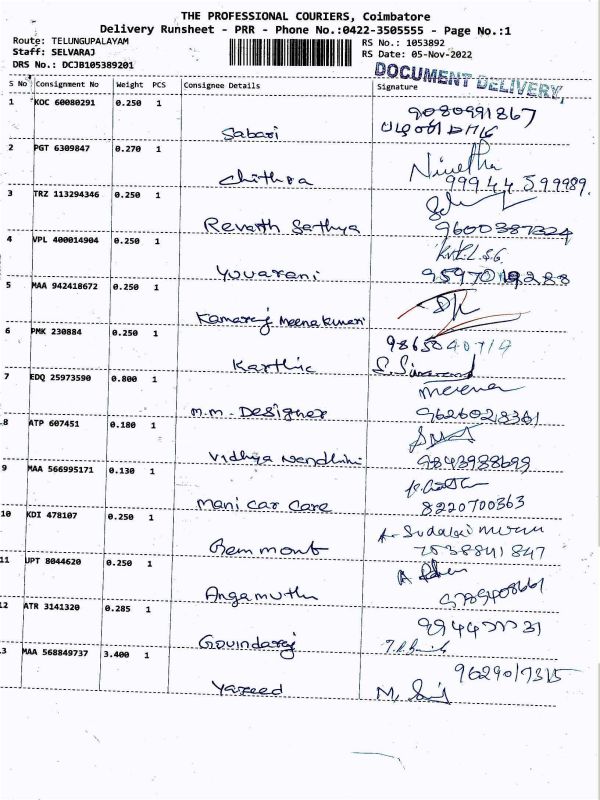 THE PROFESSIONAL COURIERS, Coimbatore
Delivery Runsheet - PRR - Phone No.:0422-3505555 - Page No.:1
Route: TELUNGUPALAYAM RS No.: 1053892
Staff: SELVARAJ RS Date: 05-Nov-2022
DRS No.: DCJB105389201
DOCUMENT DELIVERY,
S No Consignment No Weight PCS Consignee Details Signature
1 KOC 60080291 0.250 1
9080991867
Sabari
2 PGT 6309847 0.270 1
Nivetha
Chithra 99944 59989.
3 TRZ 113294346 0.250 1
Revathi Sathya 9600387324
4 VPL 400014904 0.250 1
Yuvarani
5 MAA 942418672 0.250 1
Kamaraj Meenakumari
6 PMK 230884 0.250 1
9865040719
Karthic
7 EDQ 25973590 0.800 1
meena
M.M. Designer 9626028361
8 ATP 607451 0.180 1
Vidhya Nandhini 9843988699
9 MAA 566995171 0.130 1
Mani car care 8220700363
10 KDI 478107 0.250 1
7538841847
11 UPT 8044620 0.250 1
Angamuthu 9789408661
12 ATR 3141320 0.285 1
Govindaraj
13 MAA 568849737 3.400 1
9629017315
Yazeed